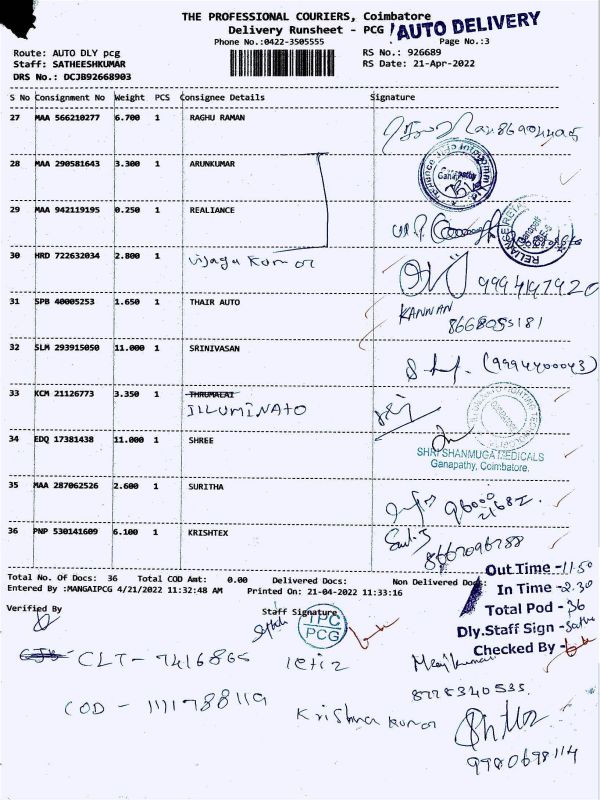 THE PROFESSIONAL COURIERS, Coimbatore
Delivery Runsheet - PCG
AUTO DELIVERY
Phone No.:0422-3505555
Page No.:3
Route: AUTO DLY pcg
RS No.: 926689
Staff: SATHEESHKUMAR
RS Date: 21-Apr-2022
DRS No.: DCJB92668903
S No Consignment No Weight PCS Consignee Details Signature
27 MAA 566210277 6.700 1 RAGHU RAMAN
28 MAA 290581643 3.300 1 ARUNKUMAR
Ganapathy
29 MAA 942119195 0.250 1 REALIANCE
30 HRD 722632034 2.800 1
Vijaya Kumar
9994197920
31 SPB 40005253 1.650 1 THAIR AUTO
KANNAN
8668055181
32 SLM 293915050 11.000 1 SRINIVASAN
(9994400043)
33 KCM 21126773 3.350 1 THRUMALAI
ILLUMINATO
34 EDQ 17381438 11.000 1 SHREE
SHRI SHANMUGA MEDICALS
Ganapathy, Coimbatore.
35 MAA 287062526 2.600 1 SURITHA
36 PNP 530141609 6.100 1 KRISHTEX
8667096788
Total No. Of Docs: 36 Total COD Amt: 0.00 Delivered Docs: Non Delivered Docs
Entered By :MANGAIPCG 4/21/2022 11:32:48 AM Printed On: 21-04-2022 11:33:16
Out Time -11.50
In Time -2.30
Total Pod -36
Dly.Staff Sign -
Checked By -
Verified By
Staff Signature
TPC
PCG
CLT - 7416865
8778340535
COD - 1111788119
Krishna Kumar
9980698114